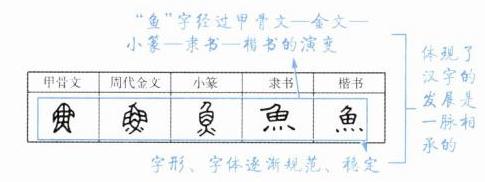 “鱼”字经过甲骨文—金文—
小篆—隶书—楷书的演变
甲骨文 周代金文 小篆 隶书 楷书
魚 魚
字形、字体逐渐规范、稳定
体现了
汉字的
发展是
一脉相
承的